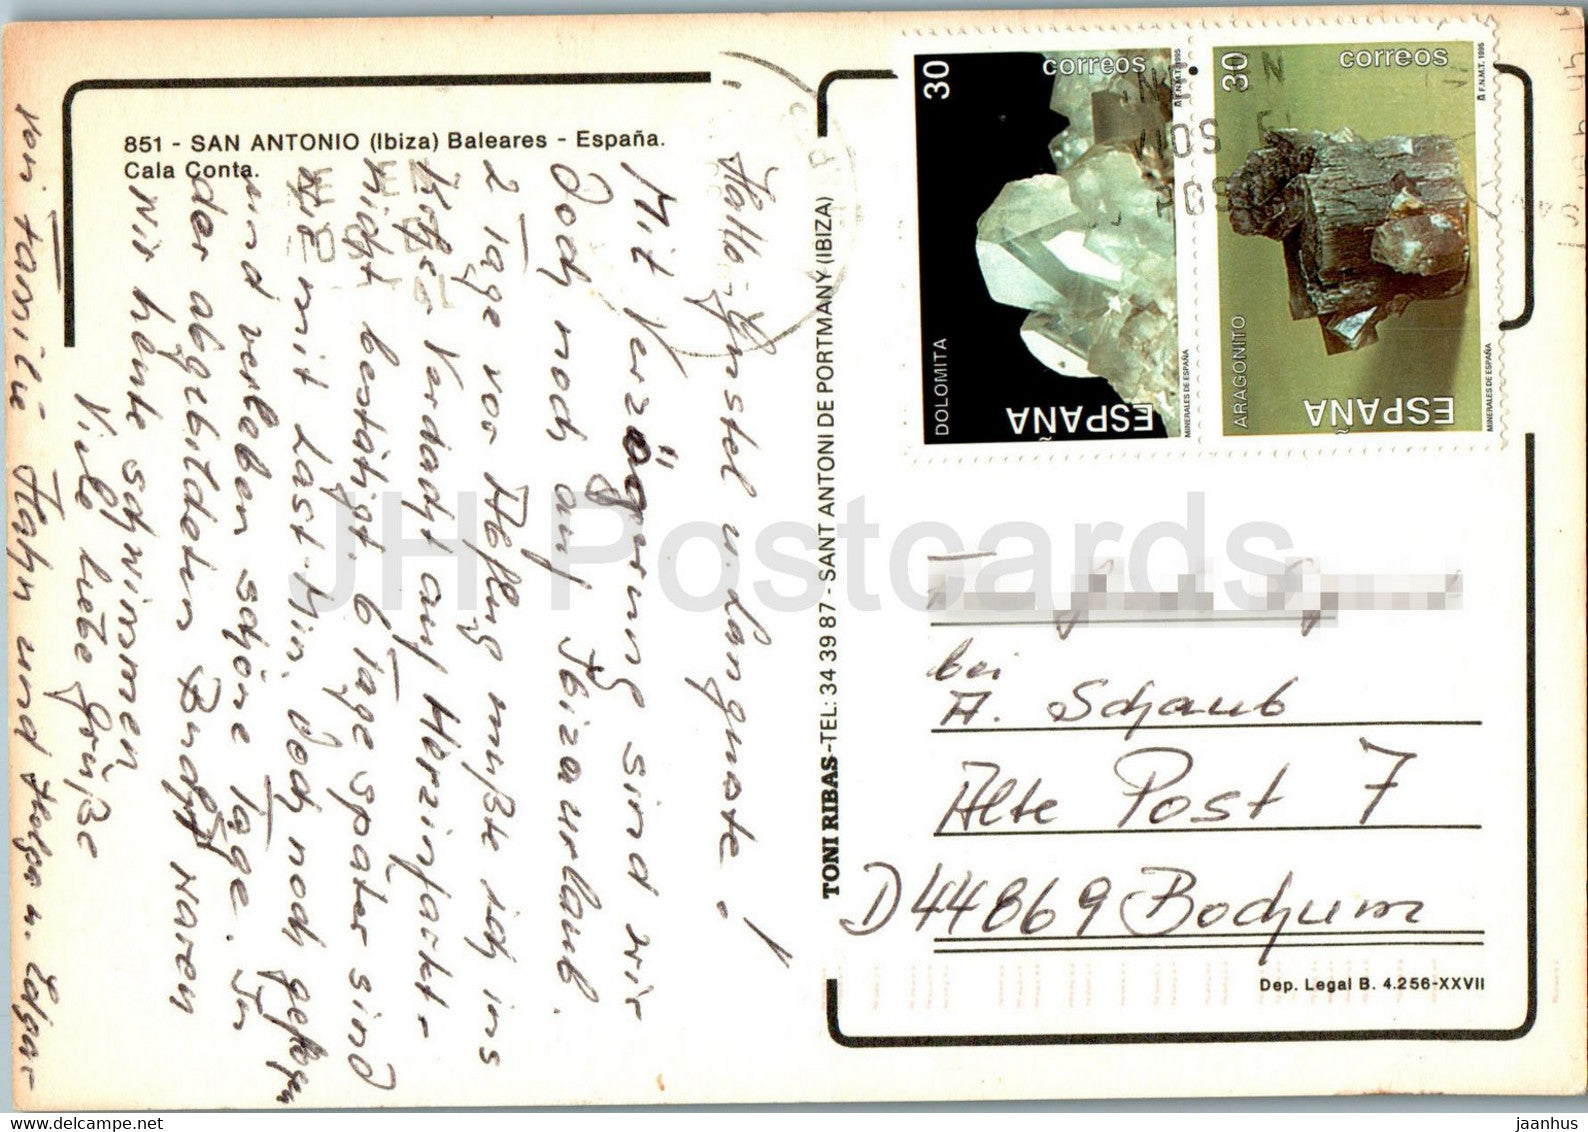 851 - SAN ANTONIO (Ibiza) Baleares - España.
Cala Conta.
Hallo Gustel u. Languste!
Mit Verzögerung sind wir
Doch noch auf Ibizaurlaub.
2 Tage vor Abflug mußte ich ins
Kh. per Verdacht auf Herzinfarkt -
nicht bestätigt. 6 Tage später sind
wir mit Last-Min. doch noch geflogen
und verleben schöne Tage. In
der abgebildeten Bucht waren
wir heute schwimmen
Viele liebe Grüße
von Familie Hahn und Holga u. Edgar
TONI RIBAS-TEL: 34 39 87 - SANT ANTONI DE PORTMANY (IBIZA)
30
correos
DOLOMITA
ESPAÑA
MINERALES DE ESPAÑA
F.N.M.T. 1995
30
correos
ARAGONITO
ESPAÑA
MINERALES DE ESPAÑA
F.N.M.T. 1995
bei
A. Schaub
Alte Post 7
D 44869 Bochum
Dep. Legal B. 4.256-XXVII
JH Postcards
www.delcampe.net
jaanhus